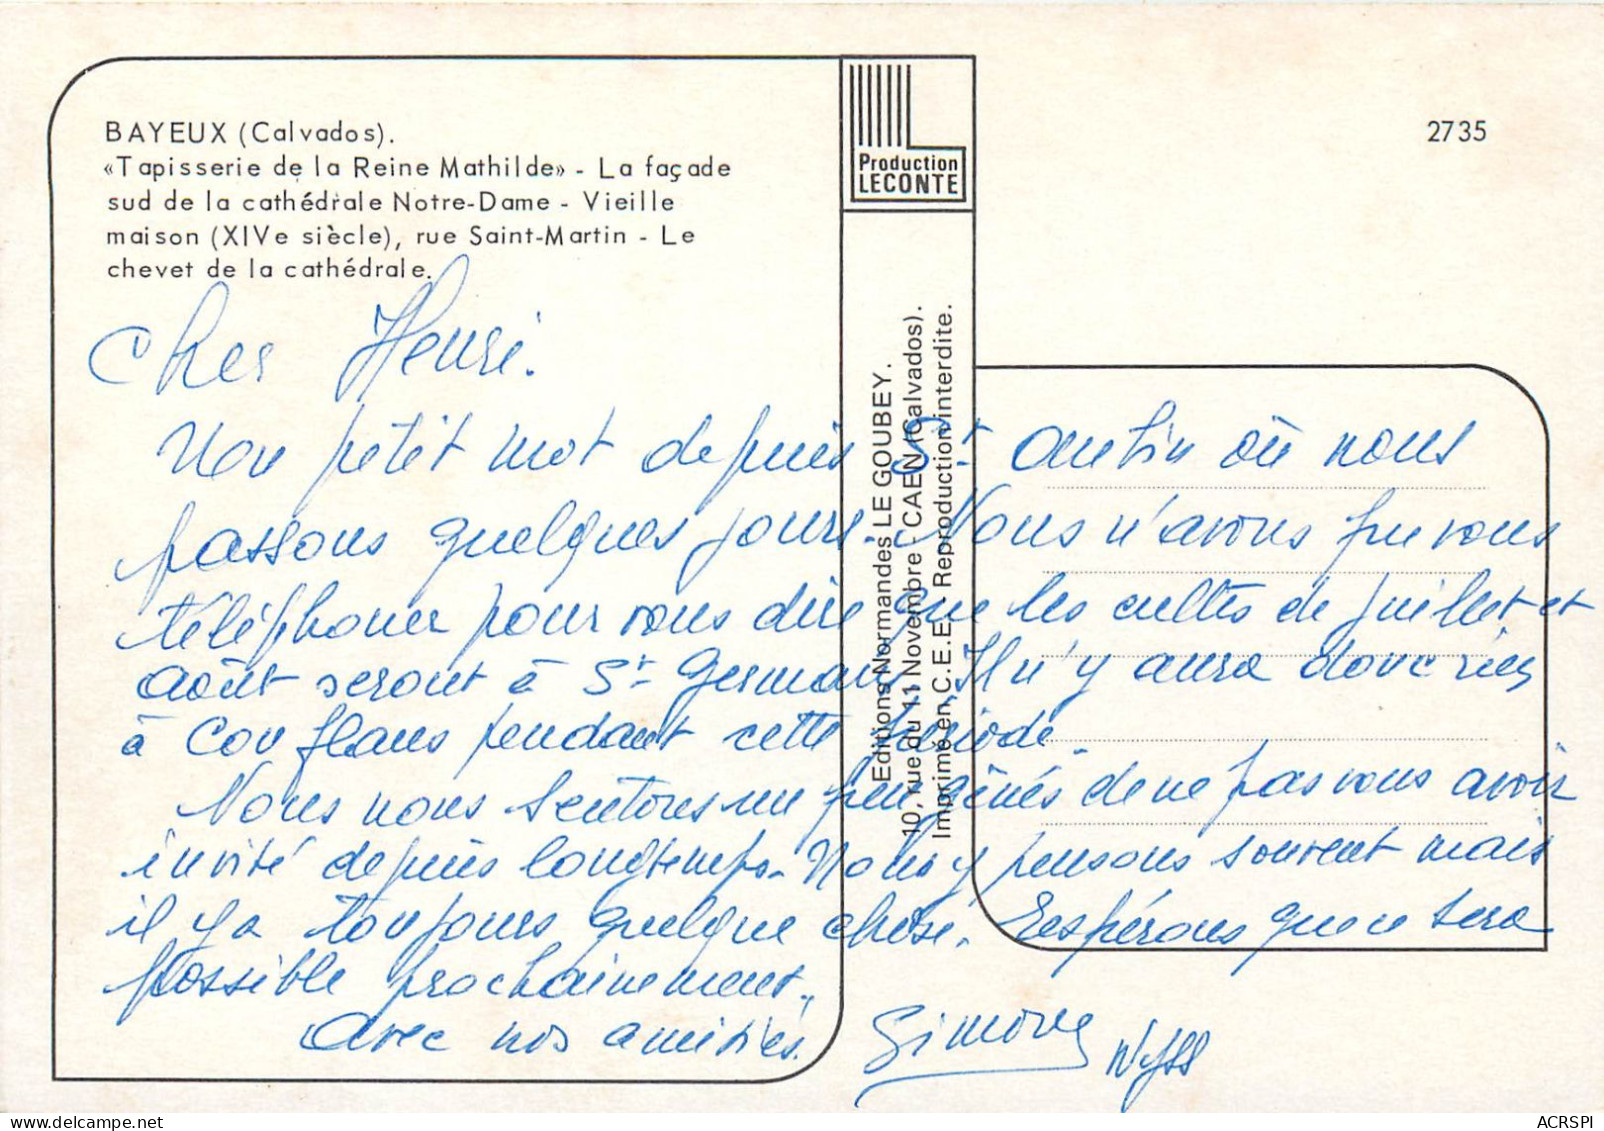 BAYEUX (Calvados).
«Tapisserie de la Reine Mathilde» - La façade
sud de la cathédrale Notre-Dame - Vieille
maison (XIVe siècle), rue Saint-Martin - Le
chevet de la cathédrale.
Production
LECONTE
2735
Editions Normandes LE GOUBEY.
10, rue du 11 Novembre - CAEN (Calvados).
Imprimé en C.E.E. - Reproduction interdite.
Cher Henri.
Un petit mot depuis St Aubin où nous
passons quelques jours. Nous n'avons pu vous
téléphoner pour vous dire que les cultes de juillet et
août seront à St Germain, Il n'y aura donc rien
à Conflans pendant cette période.
Nous nous sentons un peu gênés de ne pas vous avoir
invité depuis longtemps. Nous y pensons souvent mais
il y a toujours quelque chose. Espérons que ce sera
possible prochainement.
Avec nos amitiés. Simone Wyss
ACRSPI